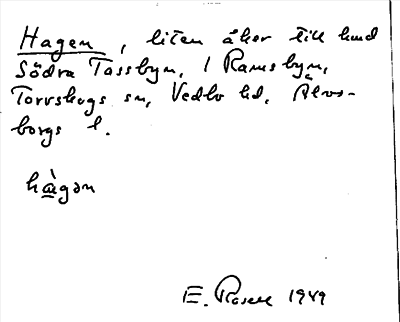 Hagen, liten åker till hmd
Södra Tassbyn, i Ramsbyn,
Torrskogs sn, Vedbo hd, Älvs-
borgs l.
hàgan
E. Rosell 1949